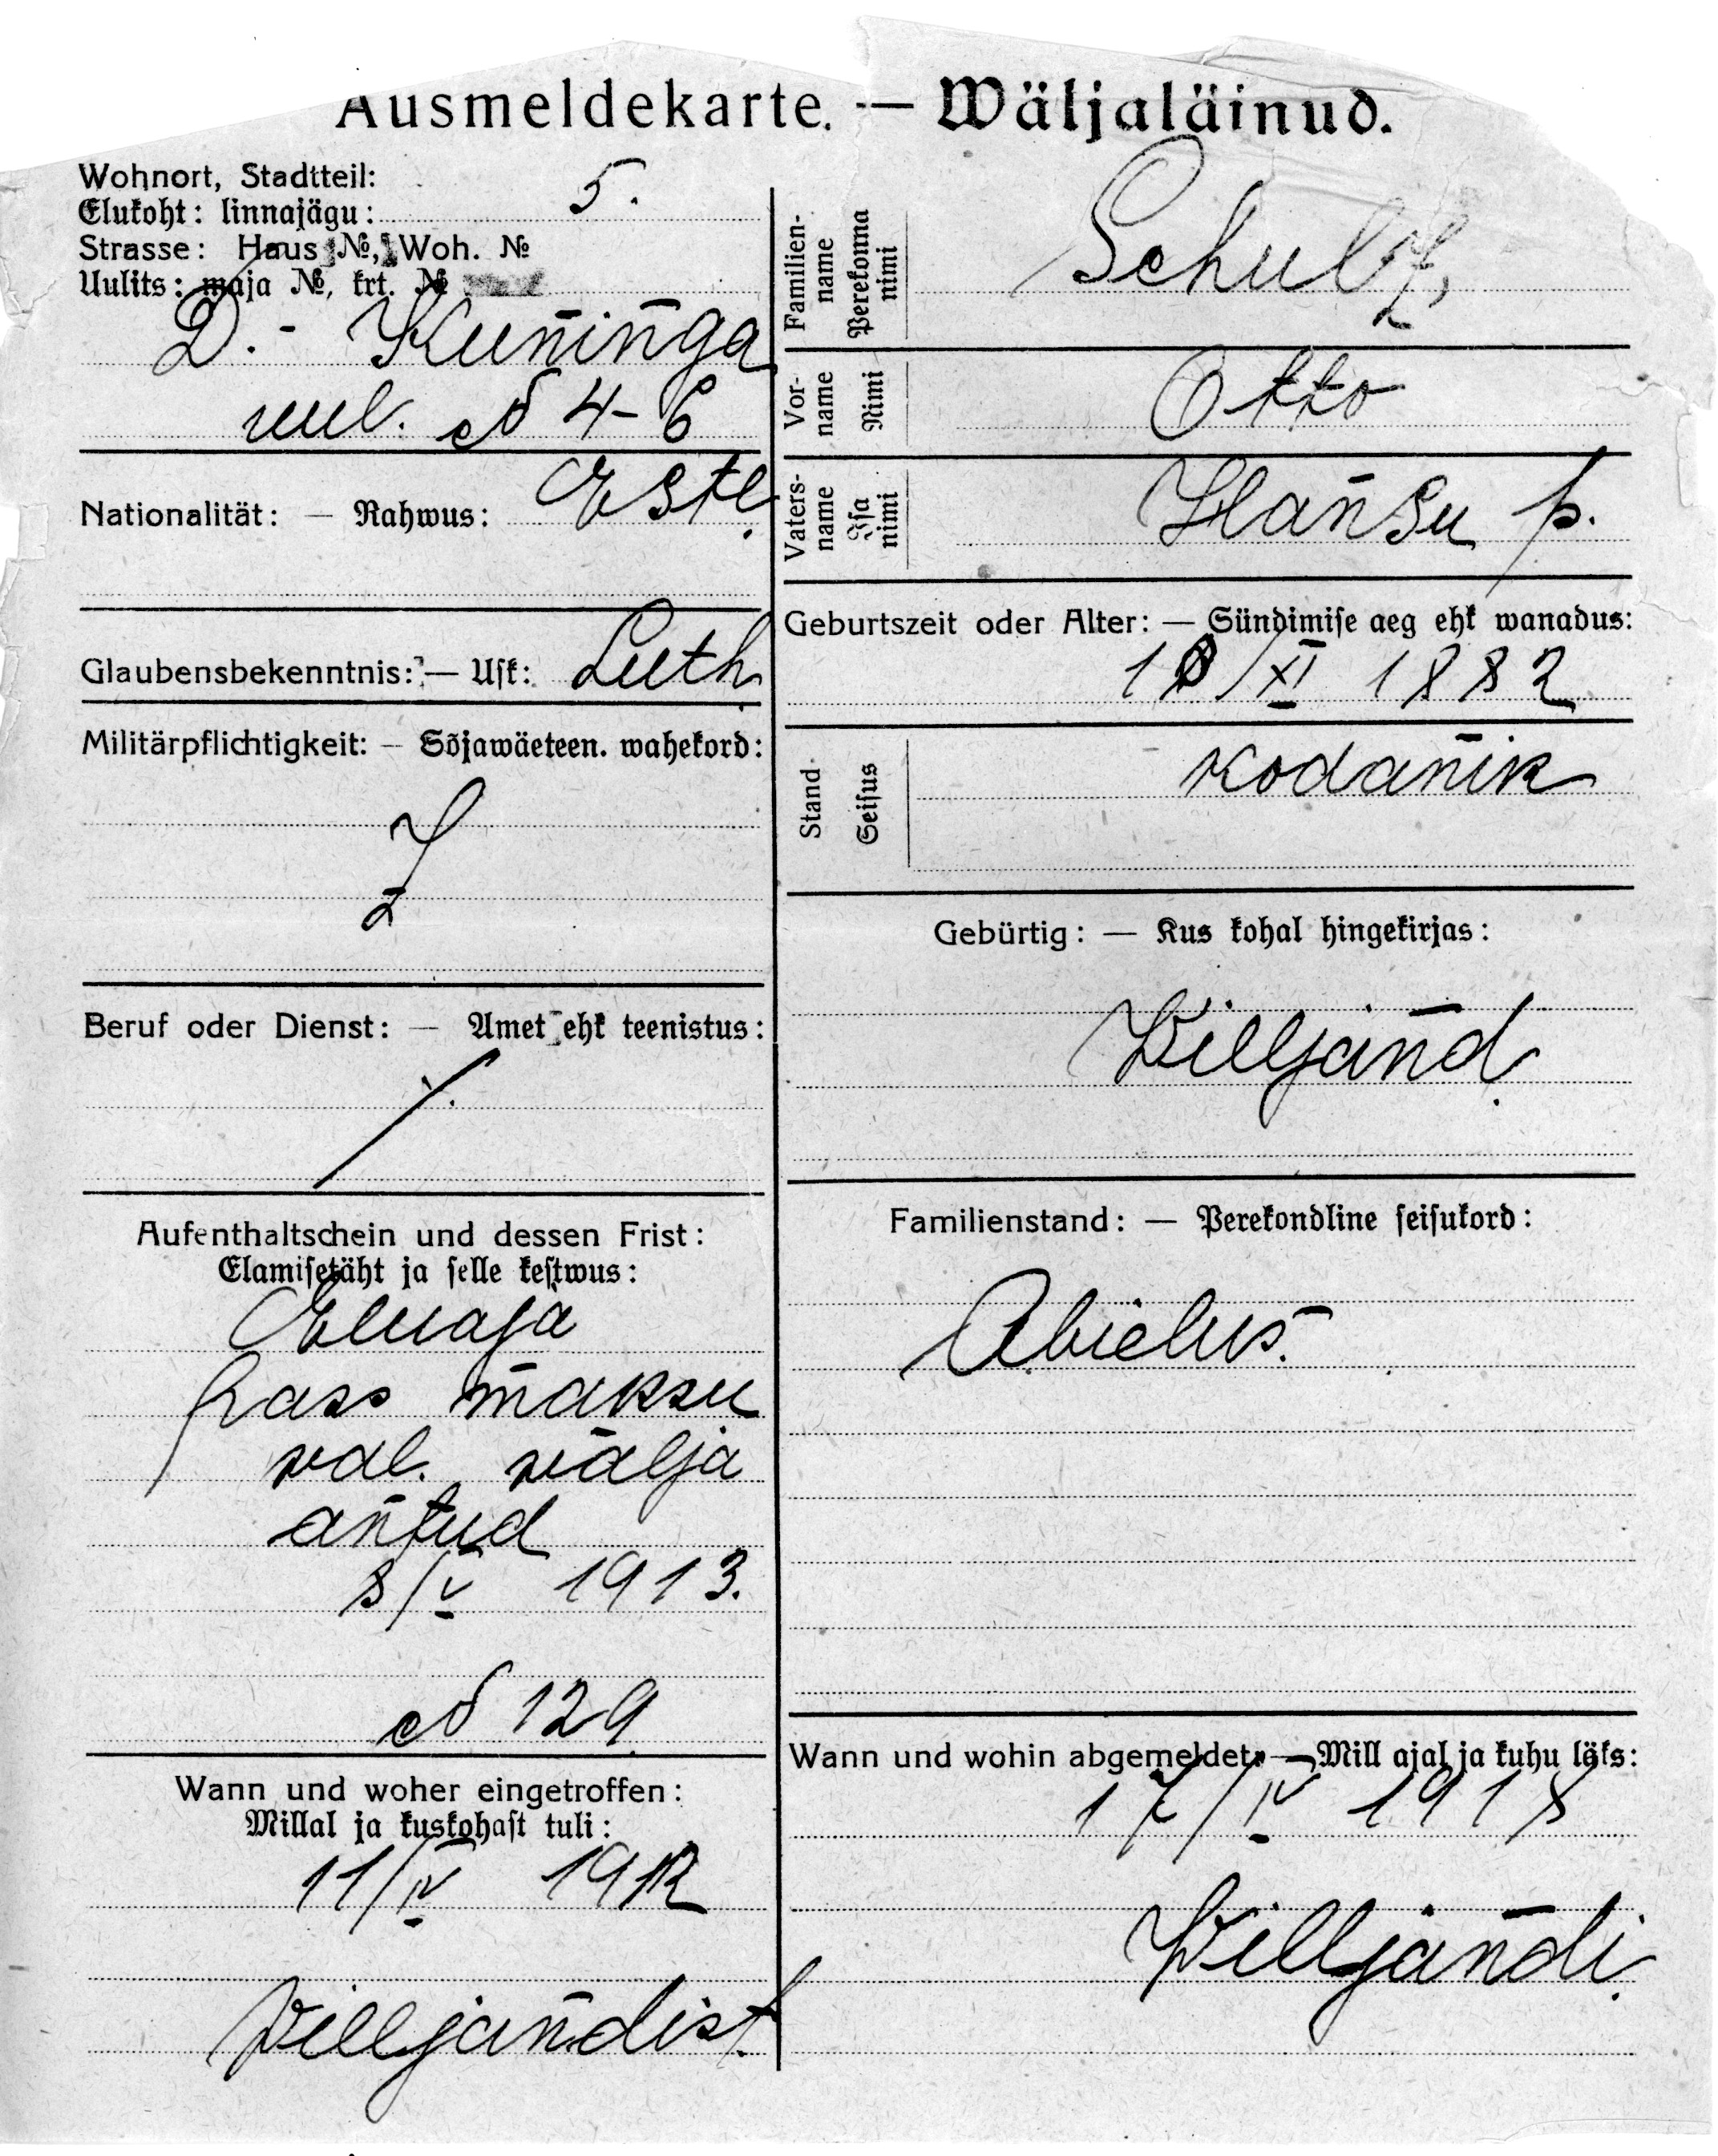 Ausmeldekarte. — Wäljaläinud.
Wohnort, Stadtteil:
Elukoht: linnajägu: 5.
Strasse: Haus №, Woh. №
Uulits: maja №, krt. №
D. - Kuninga
uul. № 4-6
Nationalität: — Rahwus: Estl.
Glaubensbekenntnis: — Usk: Luth.
Militärpflichtigkeit: — Sõjawäeteen. wahekord:
Beruf oder Dienst: — Amet ehk teenistus:
Aufenthaltschein und dessen Frist:
Elamisetäht ja selle kestwus:
Eluaja
pass maksu
val. välja
antud
8/V 1913.
№ 129
Wann und woher eingetroffen:
Millal ja kuskohast tuli:
11/IV 1912
Villjandist.
Familien-
name
Perekonna
nimi
Schulz,
Vor-
name
Nimi
Otto
Vaters-
name
Isa
nimi
Hansu p.
Geburtszeit oder Alter: — Sündimise aeg ehk wanadus:
/XI 1882
Stand
Seisus
Kodanik
Gebürtig: — Kus kohal hingekirjas:
Villjand.
Familienstand: — Perekondline seisukord:
Abielus.
Wann und wohin abgemeldet: — Mill ajal ja kuhu läks:
17/IV 1918
Villjandi.